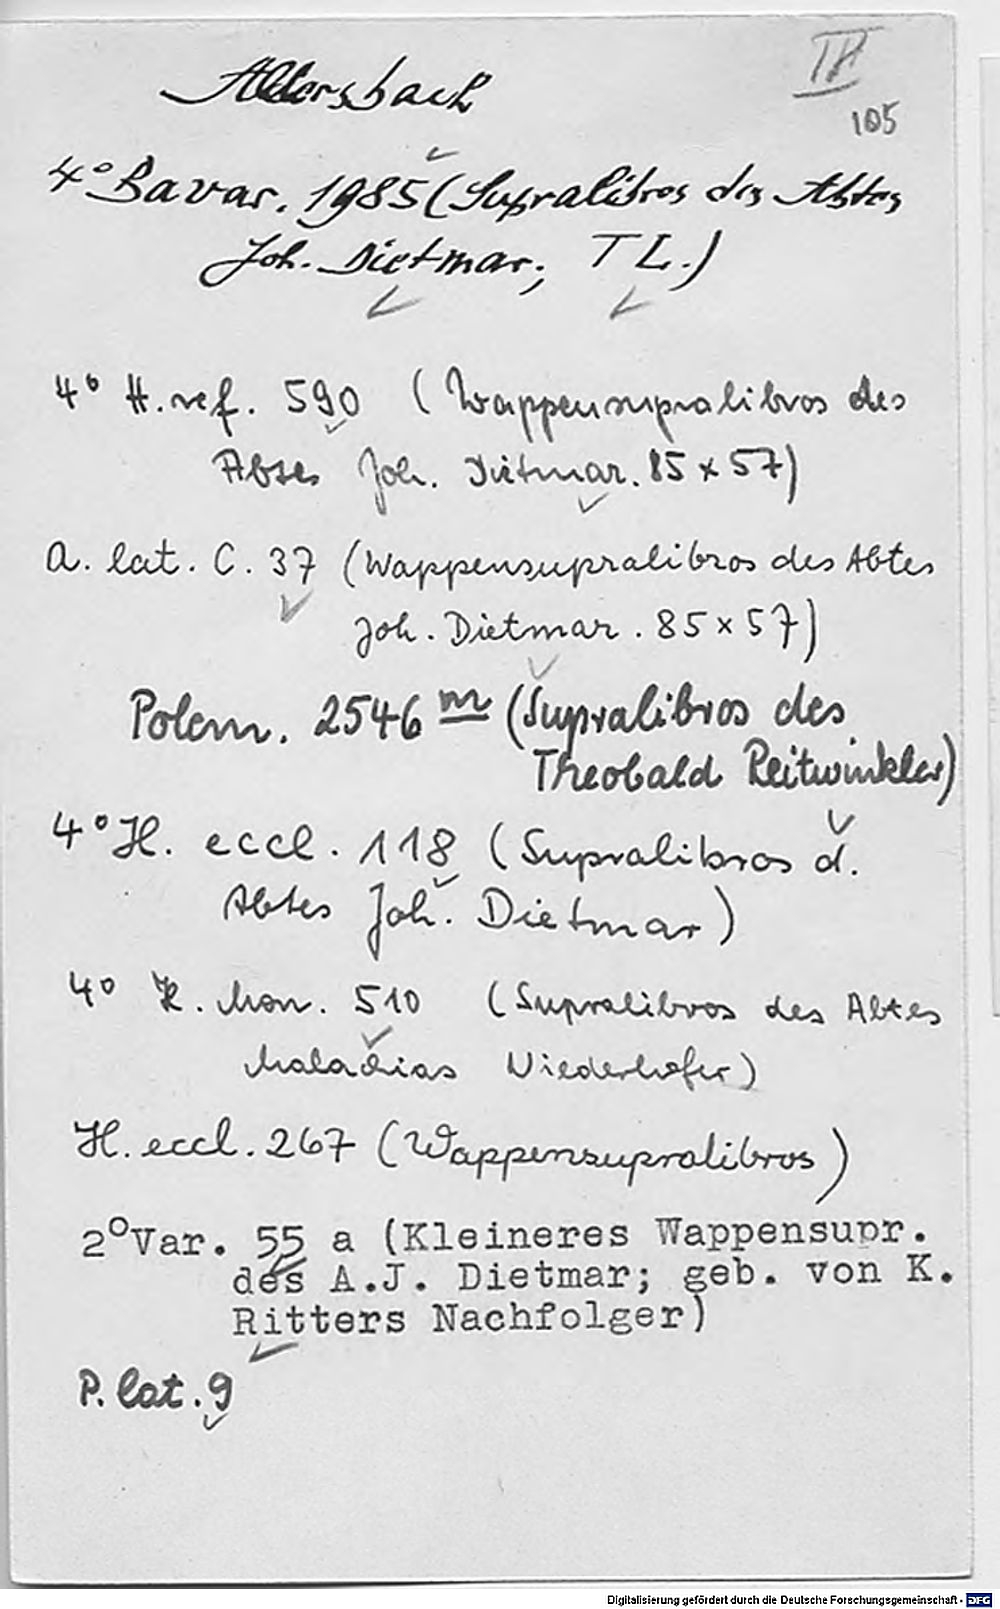 Aldersbach
III
105
4° Bavar. 1985 (Supralibros des Abtes
Joh. Dietmar; T L.)
4° H. ref. 590 (Wappensupralibros des
Abtes Joh. Dietmar. 85 x 57)
A. lat. C. 37 (Wappensupralibros des Abtes
Joh. Dietmar. 85 x 57)
Polem. 2546 m (Supralibros des
Theobald Reitwinkler)
4° H. eccl. 118 (Supralibros d.
Abtes Joh. Dietmar)
4° H. Mon. 510 (Supralibros des Abtes
Malachias Niederhofer)
H. eccl. 267 (Wappensupralibros)
2° Var. 55 a (Kleineres Wappensupr.
des A.J. Dietmar; geb. von K.
Ritters Nachfolger)
P. lat. 9
Digitalisierung gefördert durch die Deutsche Forschungsgemeinschaft - DFG